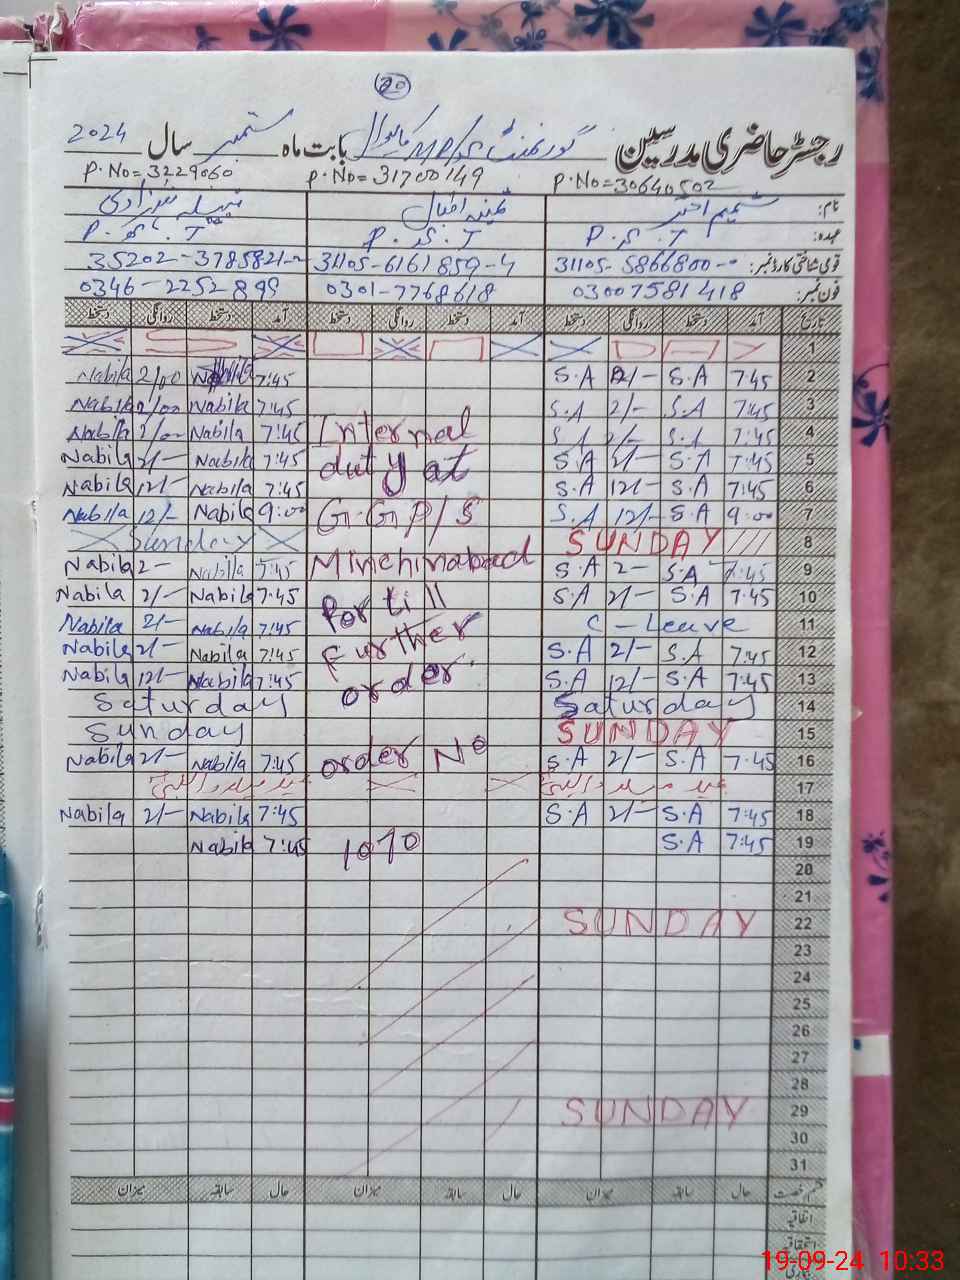 20
رجسٹر حاضری مدرسین گورنمنٹ M/P/S بابت ماہ ستمبر سال 2024
P.No=30640502 P.No=31700149 P.No=3229060
نام: شمیم اختر ثمینہ اقبال نبیلہ شہزادی
عہدہ: P.S.T P.S.T P.S.T
قومی شناختی کارڈ نمبر: 31105-5866800-0 31105-6161859-4 35202-3785821-
فون نمبر: 03007581418 0301-7768618 0346-2252899
تاریخ آمد دستخط روانگی دستخط آمد دستخط روانگی دستخط آمد دستخط روانگی دستخط
1
2 7:45 S.A 2/- S.A 7:45 Nabila 2/00 Nabila
3 7:45 S.A 2/- S.A 7:45 Nabila 2/00 Nabila
4 7:45 S.A 2/- S.A Internal 7:45 Nabila 2/00 Nabila
5 7:45 S.A 2/- S.A duty at 7:45 Nabila 2/- Nabila
6 7:45 S.A 12/- S.A 7:45 Nabila 12/- Nabila
7 9:00 S.A 12/- S.A G.G P/S 9:00 Nabila 12/- Nabila
8 SUNDAY Sunday
9 7:45 S.A 2- S.A Minchinabad 7:45 Nabila 2- Nabila
10 7:45 S.A 2/- S.A for till 7:45 Nabila 2/- Nabila
11 C-Leave further 7:45 Nabila 2/- Nabila
12 7:45 S.A 2/- S.A 7:45 Nabila 2/- Nabila
13 7:45 S.A 12/- S.A order. 7:45 Nabila 12/- Nabila
14 Saturday Saturday
15 SUNDAY Sunday
16 7:45 S.A 2/- S.A order No 7:45 Nabila 2/- Nabila
17 عید میلاد النبی عید میلاد النبی
18 7:45 S.A 2/- S.A 7:45 Nabila 2/- Nabila
19 7:45 S.A 1070 7:45 Nabila
20
21
22 SUNDAY
23
24
25
26
27
28
29 SUNDAY
30
31
قسم رخصت حال سابقہ میزان حال سابقہ میزان حال سابقہ میزان
اتفاقیہ
استحقاقیہ
19-09-24 10:33